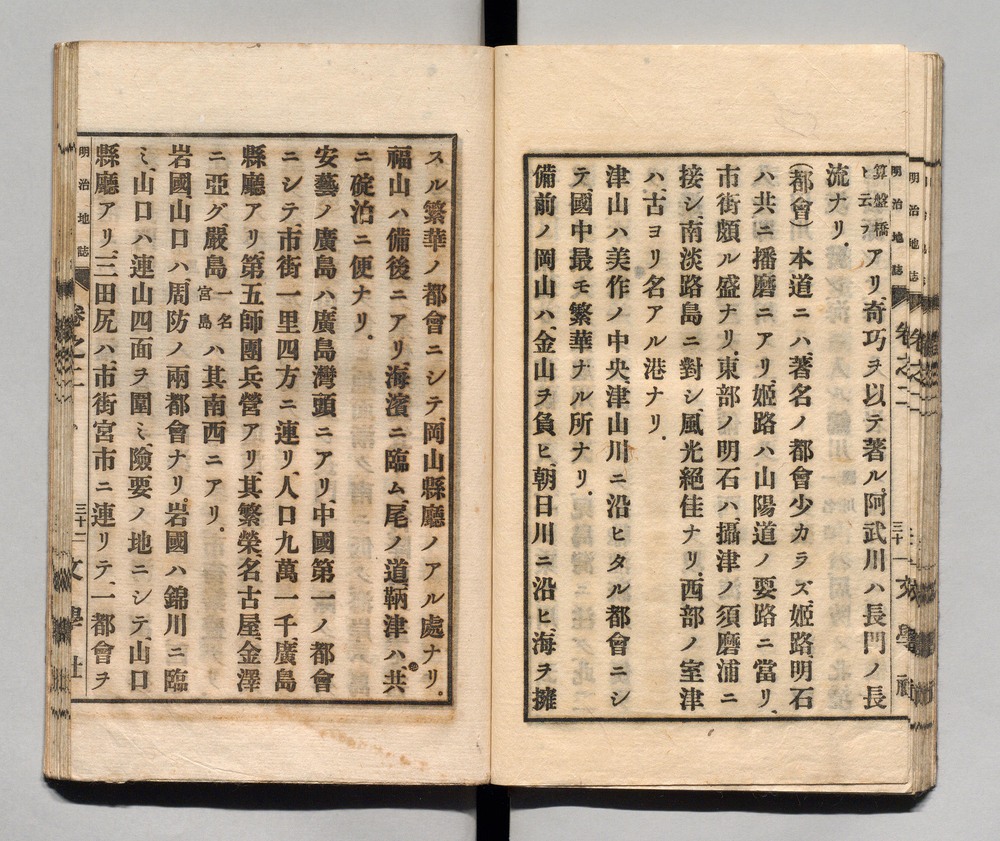 算盤橋
ト云フアリ、奇巧ヲ以テ著ル、阿武川ハ長門ノ長
流ナリ、
(都會)本道ニハ著名ノ都會少カラズ、姫路、明石
ハ共ニ播磨ニアリ、姫路ハ山陽道ノ要路ニ當リ、
市街頗ル盛ナリ、東部ノ明石ハ攝津ノ須磨浦ニ
接シ、南淡路島ニ對シ、風光絕佳ナリ、西部ノ室津
ハ、古ヨリ名アル港ナリ、
津山ハ美作ノ中央、津山川ニ沿ヒタル都會ニシ
テ、國中最モ繁華ナル所ナリ、
備前ノ岡山ハ、金山ヲ負ヒ、朝日川ニ沿ヒ、海ヲ擁
明治地誌 卷之二 三十一 文學社
スル繁華ノ都會ニシテ、岡山縣廳ノアル處ナリ、
福山ハ備後ニアリ、海濱ニ臨ム、尾ノ道、鞆津ハ共
ニ碇泊ニ便ナリ、
安藝ノ廣島ハ廣島灣頭ニアリ、中國第一ノ都會
ニシテ、市街一里四方ニ連リ、人口九萬一千、廣島
縣廳アリ、第五師團兵營アリ、其繁榮、名古屋、金澤
ニ亞グ、嚴島一名宮島ハ其南西ニアリ、
岩國、山口ハ、周防ノ兩都會ナリ、岩國ハ錦川ニ臨
ミ、山口ハ連山四面ヲ圍ミ、險要ノ地ニシテ、山口
縣廳アリ、三田尻ハ、市街宮市ニ連リテ、一都會ヲ
明治地誌 卷之二 三十二 文學社